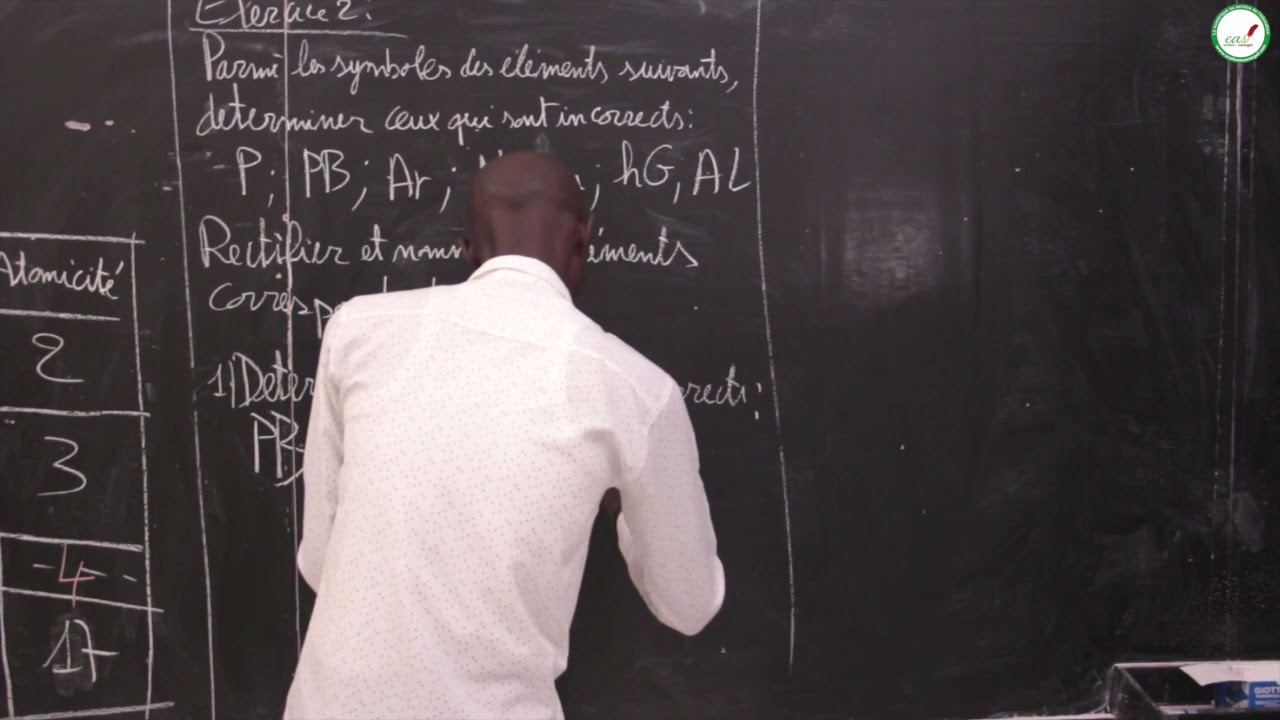 Exercice 2:
Parmi les symboles des éléments suivants,
determiner ceux qui sont incorrects:
P; PB; Ar; ; hG, AL
Rectifier et éments
corresp
1) Deter rects:
PB
Atomicité
2
3
4
17
eas
GIOTTO